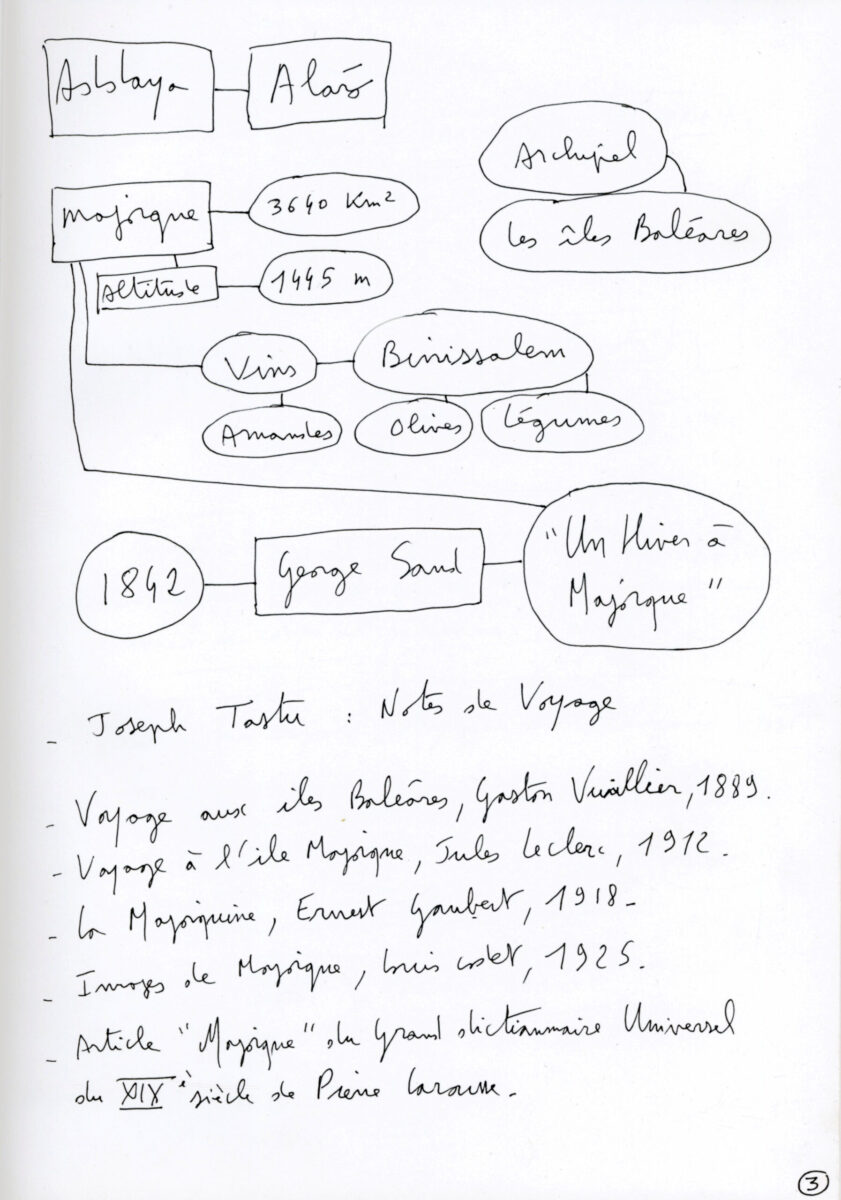 Alaró
Archipel
Majorque
3640 Km²
les îles Baléares
Altitude
1445 m
Vins
Binissalem
Amandes
Olives
Légumes
1842
George Sand
"Un Hiver à
Majorque"
- Joseph Tastu : Notes de Voyage
- Voyage aux îles Baléares, Gaston Vuillier, 1889.
- Voyage à l'île Majorque, Jules Leclerc, 1912.
- La Majorquine, Ernest Gaubert, 1918-
- Images de Majorque, Louis Codet, 1925.
- Article "Majorque" du Grand dictionnaire Universel
du XIXè siècle de Pierre Larousse-
3